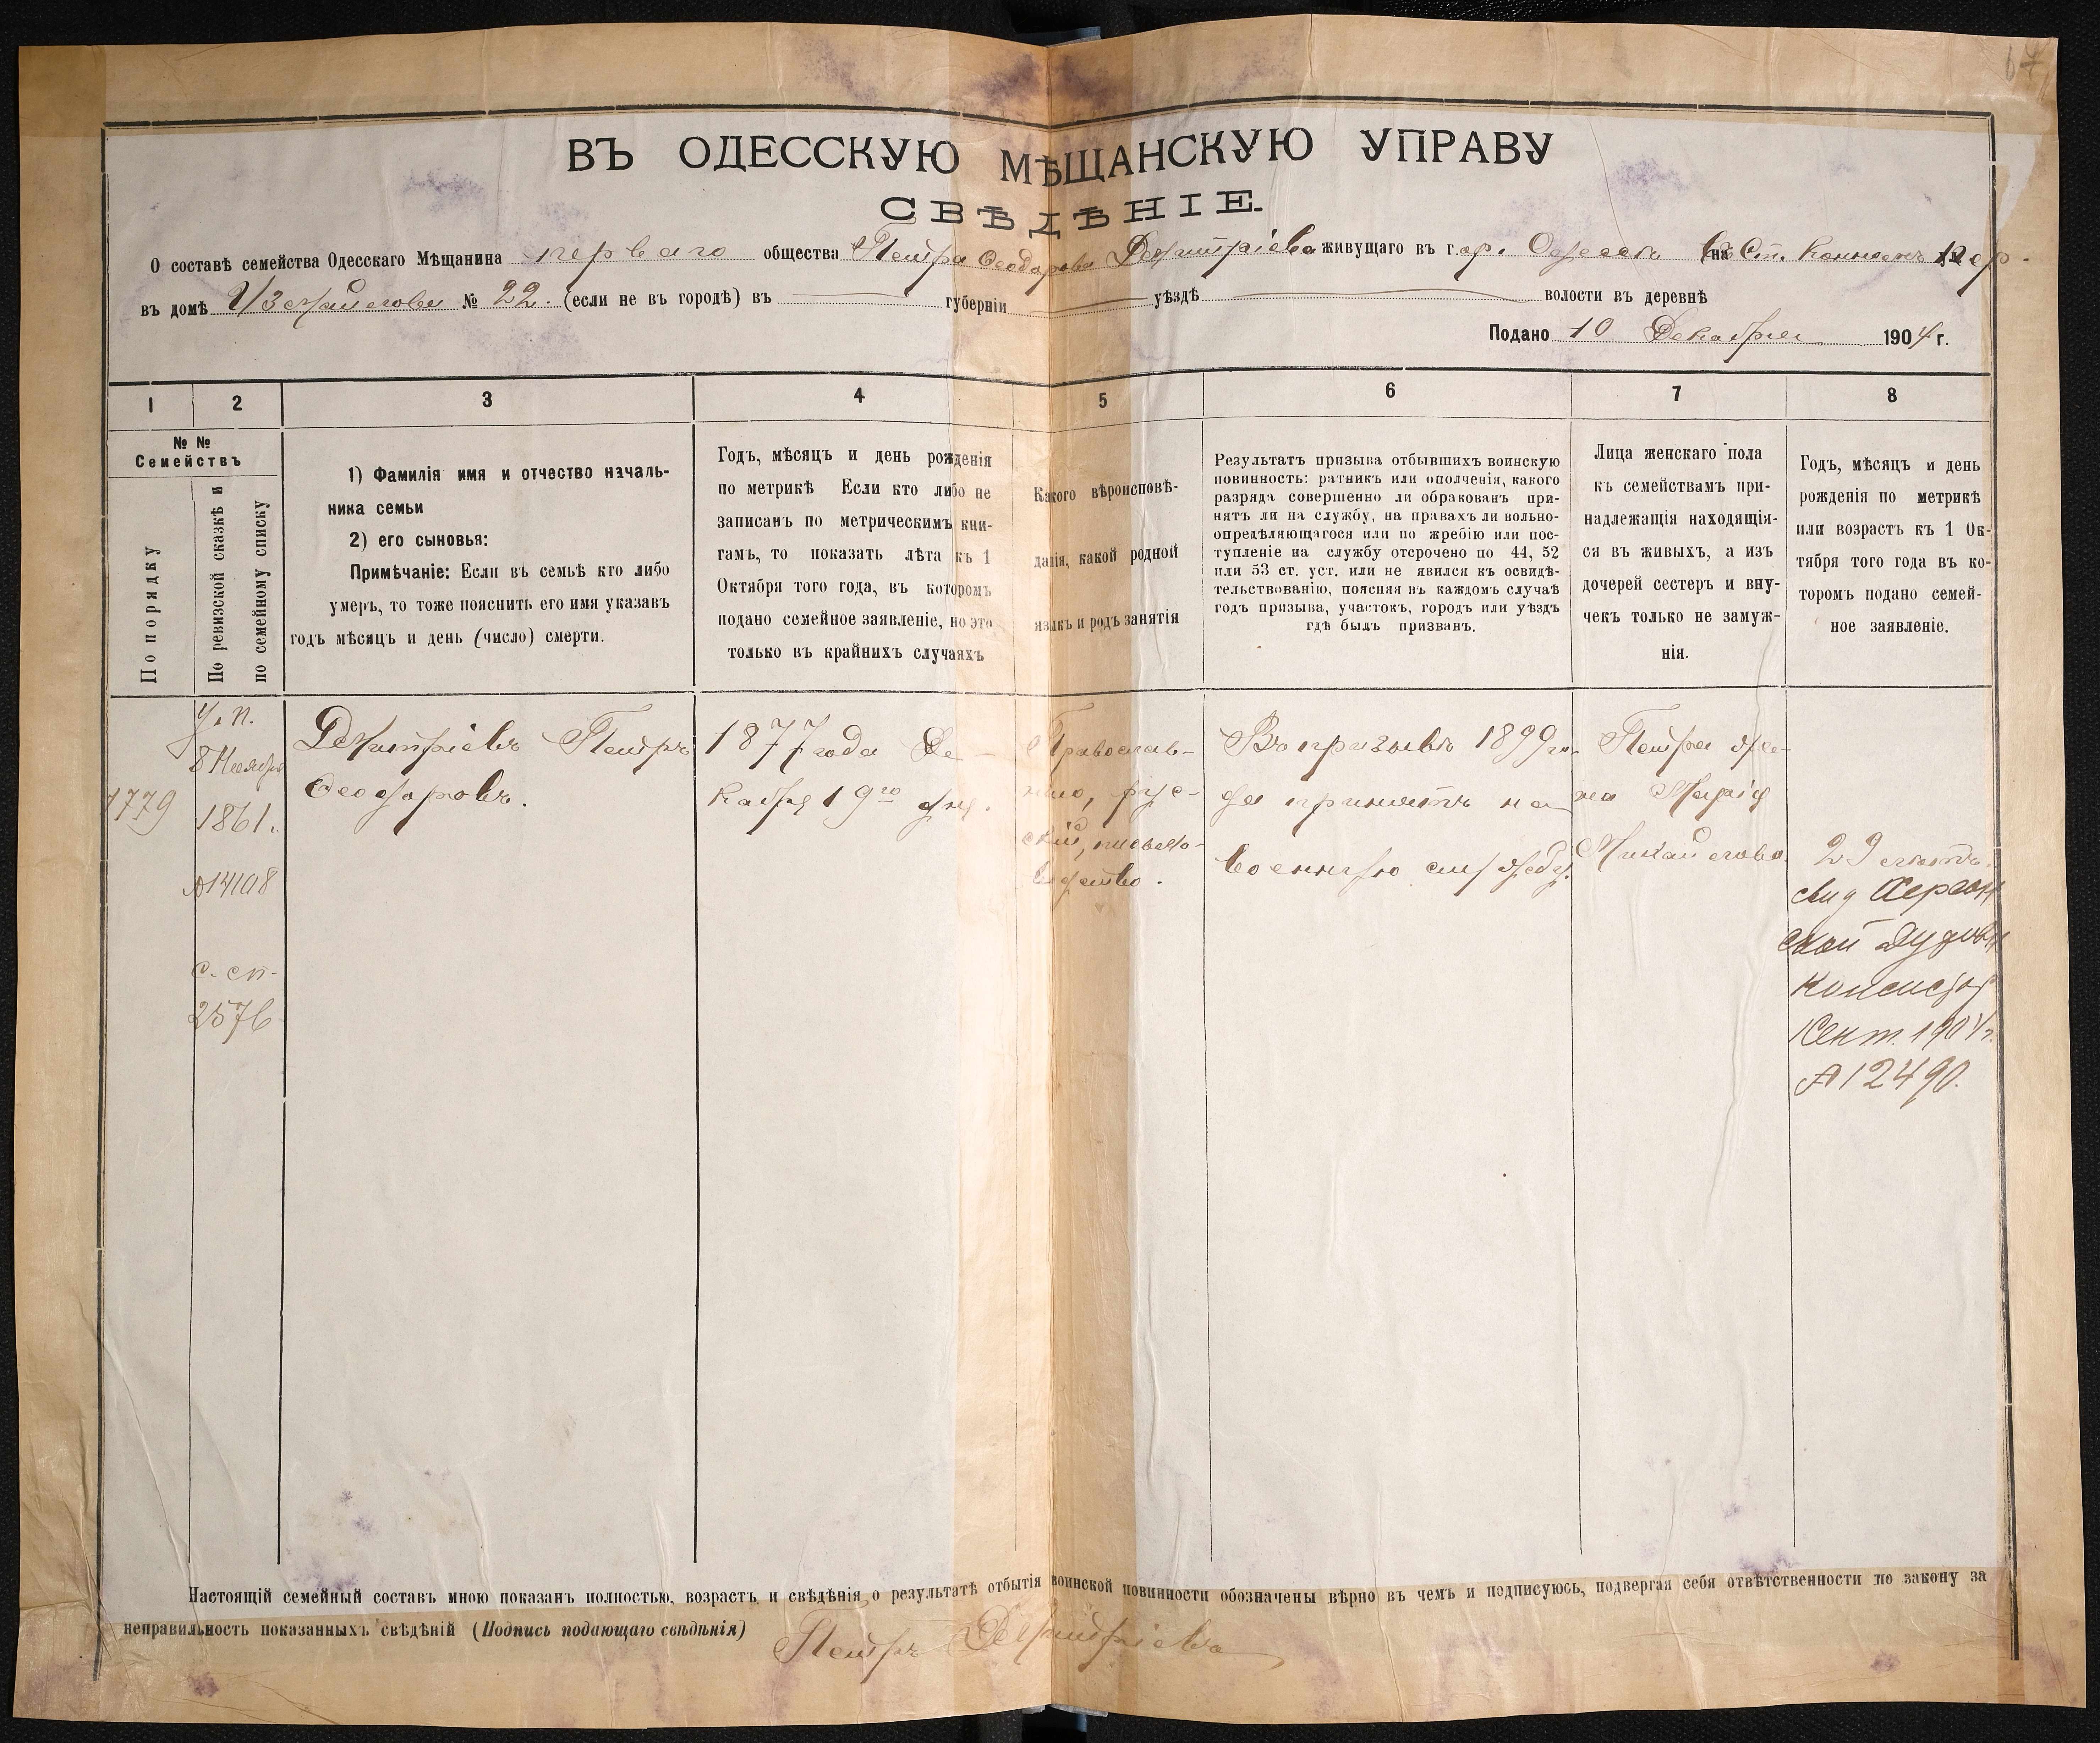 67
ВЪ ОДЕССКУЮ МѢЩАНСКУЮ УПРАВУ
СВѢДѢНІЕ.
О составѣ семейства Одесскаго Мѣщанина перваго общества Петра Ѳеодорова Дмитріева живущаго въ гор. Одессѣ на Ст. Конномъ пер.
въ домѣ Измайлова № 22. (если не въ городѣ) въ губерніи уѣздѣ волости въ деревнѣ
Подано 10 Декабря 1904 г.
1 2 3 4 5 6 7 8
№ №
Семействъ
По порядку
По ревизской сказкѣ и
по семейному списку
1) Фамилія имя и отчество началь-
ника семьи
2) его сыновья:
Примѣчаніе: Если въ семьѣ кто либо
умеръ, то тоже пояснить его имя указавъ
годъ мѣсяцъ и день (число) смерти.
Годъ, мѣсяцъ и день рожденія
по метрикѣ Если кто либо не
записанъ по метрическимъ кни-
гамъ, то показать лѣта къ 1
Октября того года, въ которомъ
подано семейное заявленіе, но это
только въ крайнихъ случаяхъ
Какого вѣроисповѣ-
данія, какой родной
языкъ и родъ занятія
Результатъ призыва отбывшихъ воинскую
повинность: ратникъ или ополченія, какого
разряда совершенно ли обракованъ при-
нятъ ли на службу, на правахъ ли вольно-
опредѣляющагося или по жребію или пос-
тупленіе на службу отсрочено по 44, 52
или 53 ст. уст. или не явился къ освидѣ-
тельствованію, поясняя въ каждомъ случаѣ
годъ призыва, участокъ, городъ или уѣздъ
гдѣ былъ призванъ.
Лица женскаго пола
къ семействамъ при-
надлежащія находящія-
ся въ живыхъ, а изъ
дочерей сестеръ и вну-
чекъ только не замуж-
нія.
Годъ, мѣсяцъ и день
рожденія по метрикѣ
или возрастъ къ 1 Ок-
тября того года въ ко-
торомъ подано семей-
ное заявленіе.
1779
У. п.
8 Ноября
1861.
№14108
с. сп.
2576
Дмитріевъ Петръ
Ѳеодоровъ.
1877 года Де-
кабря 19го дня.
Православ-
наго, рус-
скій, письмо-
водство.
Въ призывѣ 1899 го-
да принятъ на
военную службу.
Петра же-
на Марія
Михайлова
29 лѣтъ.
свид Херсон
ской Духовн
Консист
Сент. 1904 г.
№12490.
Настоящій семейный составъ мною показанъ полностью, возрастъ и свѣдѣнія о результатѣ отбытія воинской повинности обозначены вѣрно въ чемъ и подписуюсь, подвергая себя отвѣтственности по закону за
неправильность показанныхъ свѣдѣній (Подпись подающаго свѣдѣнія) Петръ Дмитріевъ